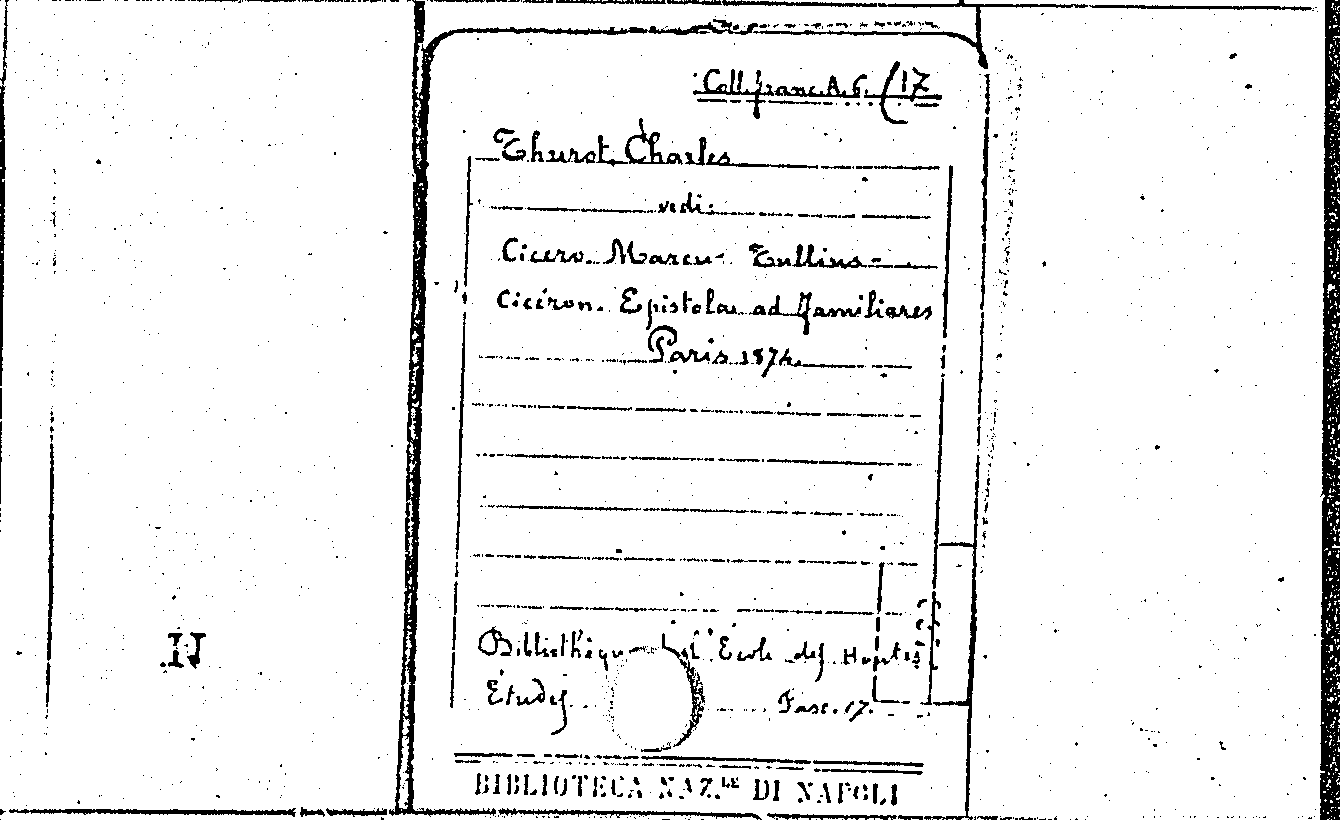 Coll. franc. A. 6. (17
Thurot, Charles
vedi:
Cicero Marcu- Tullius-
Cicéron. Epistolae ad familiares
Paris 1874.
Bibliothèque de l'Ecole des Hautes
Études Fasc. 17.
BIBLIOTECA NAZ.LE DI NAPOLI